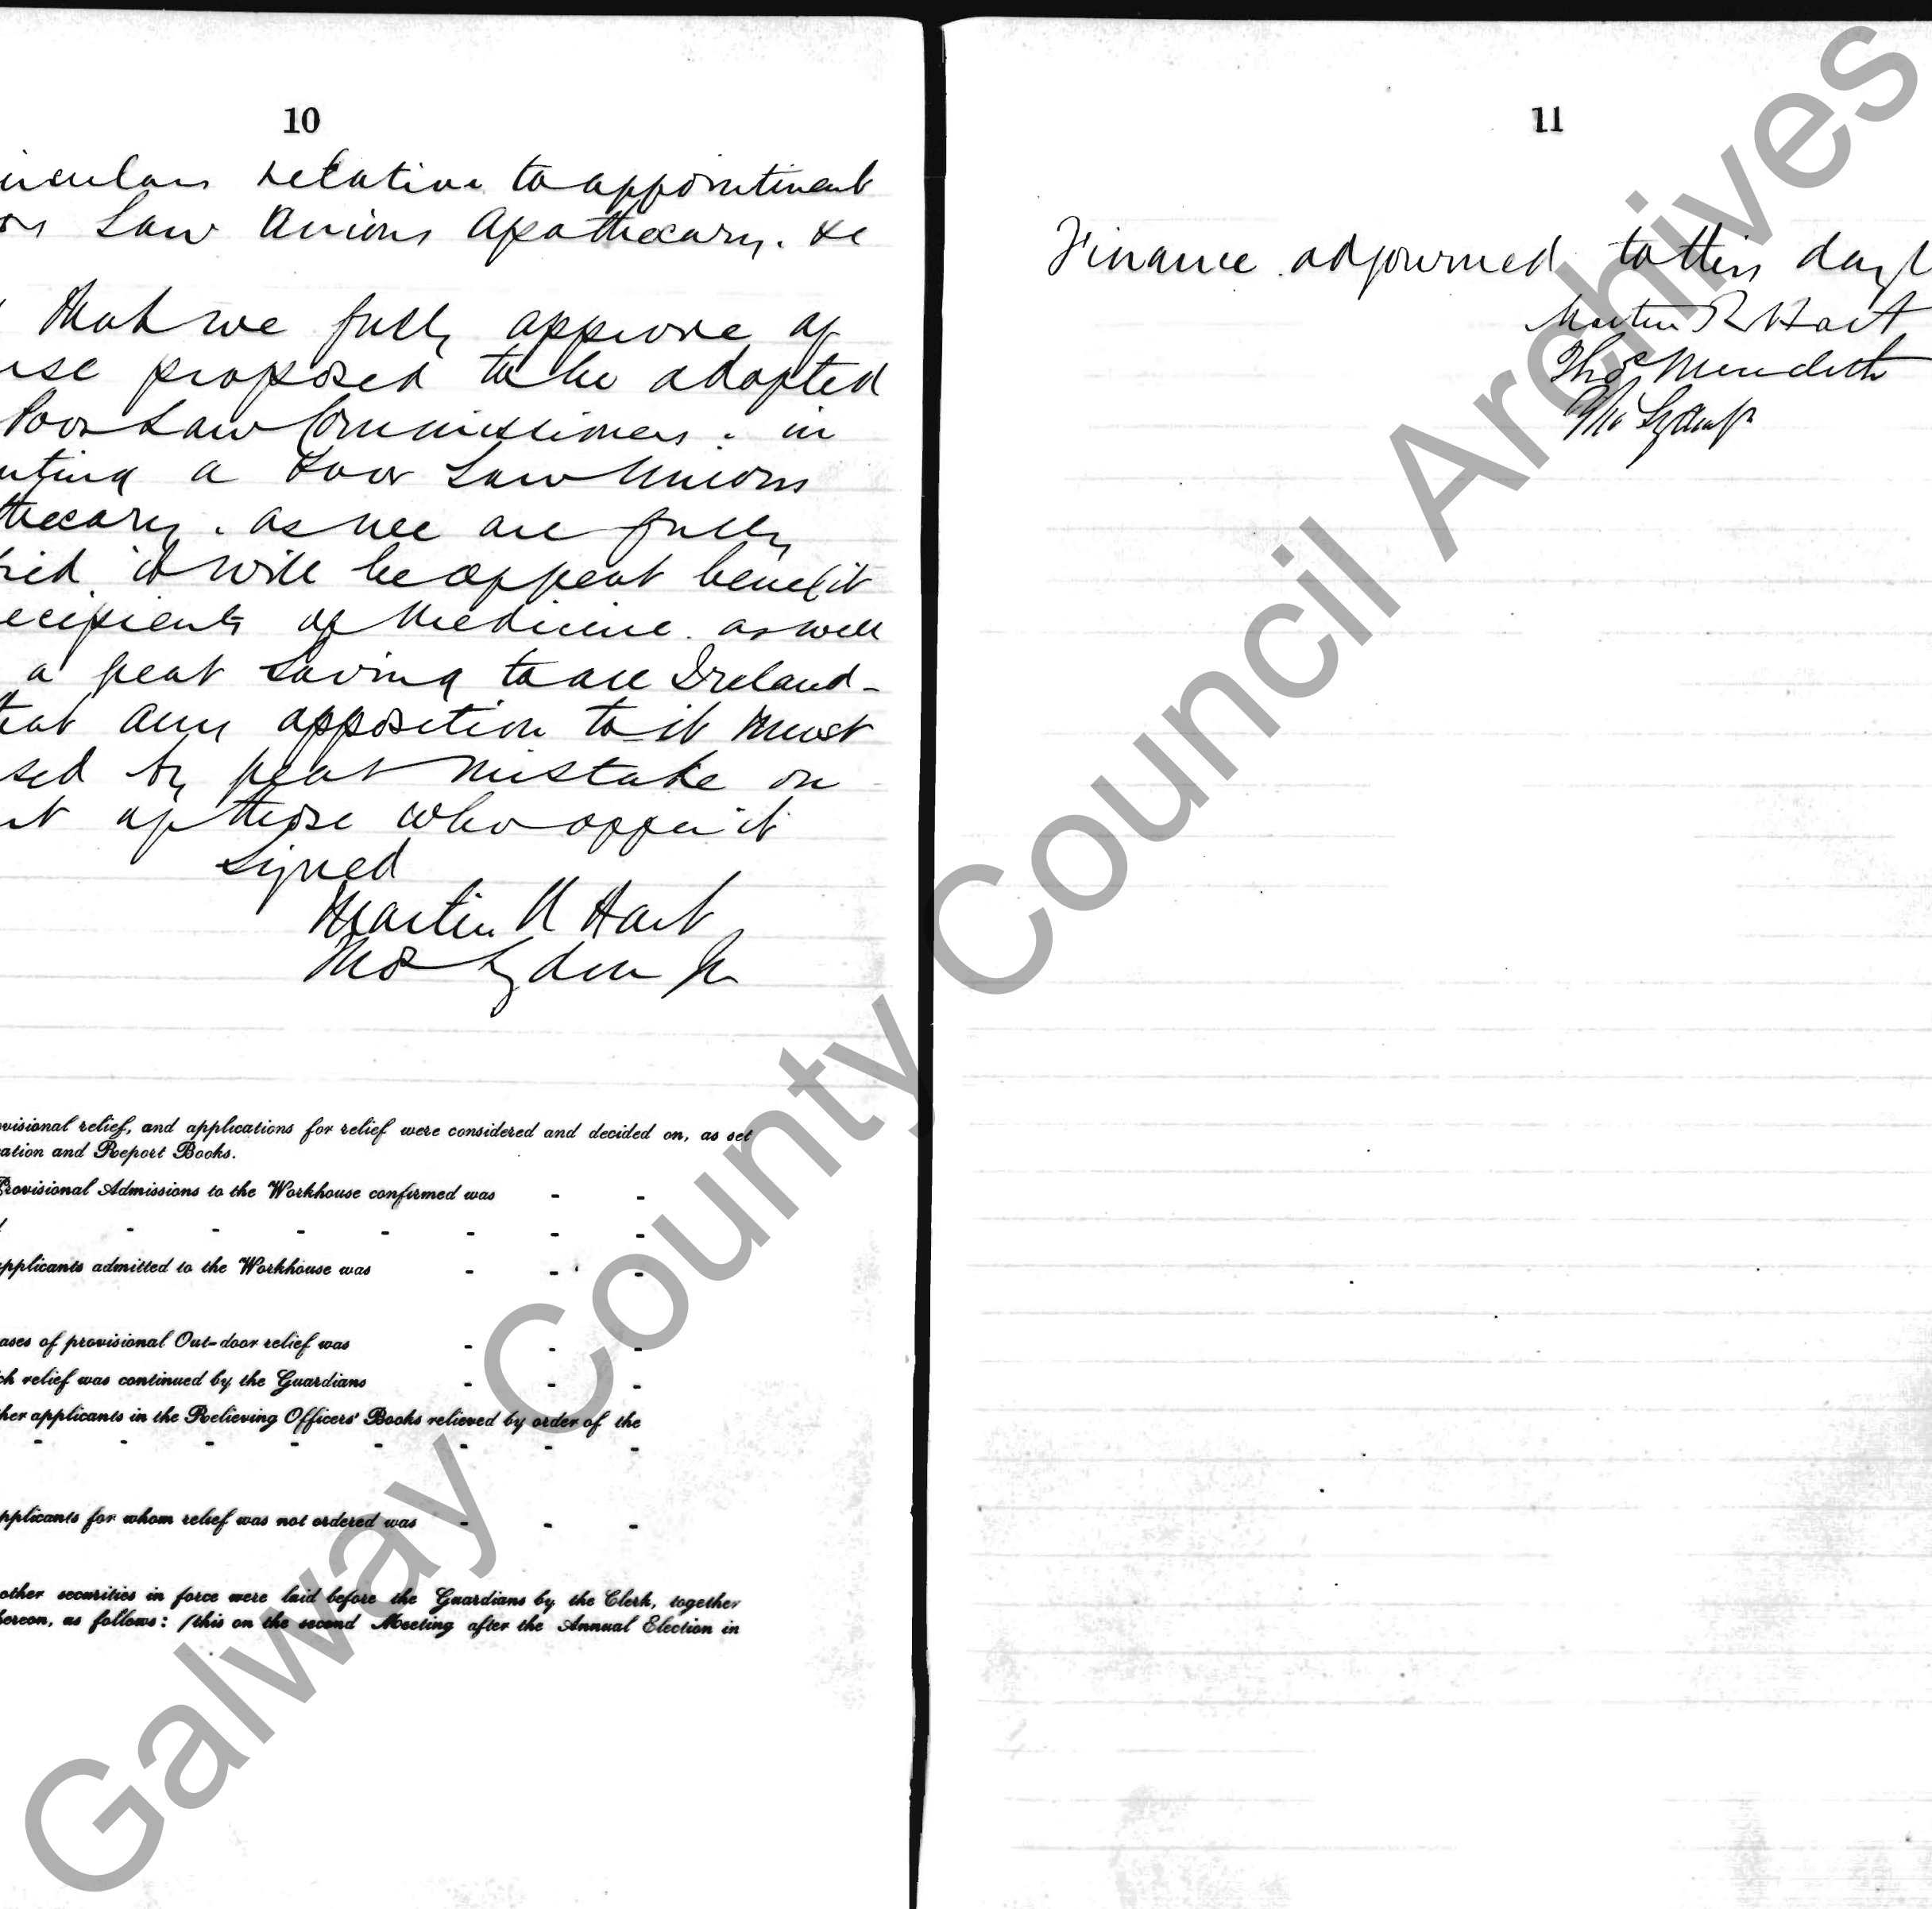 10
irculars relative to appointment
or Law Unions Apothecary. &c
that we fully approve of
rse proposed to be adopted
Poor Law Commissioners. in
nting a Poor Law Unions
thecary. as we are fully
fied it will be of great benefit
ecipients of Medicine. as well
a great saving to all Ireland -
hat any opposition to it must
sed by great mistake on
rt of those who oppose it
Signed
Martin R Hart
Thos Lydon Jr
ovisional relief, and applications for relief were considered and decided on, as set
cation and Report Books.
Provisional Admissions to the Workhouse confirmed was - -
- - - - - - -
applicants admitted to the Workhouse was - - -
cases of provisional Out-door relief was - - -
ch relief was continued by the Guardians - - -
her applicants in the Relieving Officers' Books relieved by order of the
- - - - - - - -
applicants for whom relief was not ordered was - - -
other securities in force were laid before the Guardians by the Clerk, together
hereon, as follows: (this on the second Meeting after the Annual Election in
11
Finance adjourned to this day
Martin R Hart
Thos Meredith
Galway County Council Archives